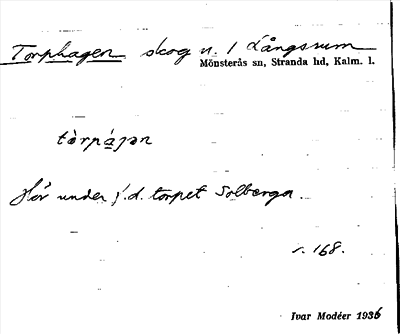 Torphagen skog n. 1 Långsrum
Mönsterås sn, Stranda hd, Kalm. l.
tòrpá̱ɡən
Hör under f.d. torpet Solberga.
r. 168.
Ivar Modéer 1936